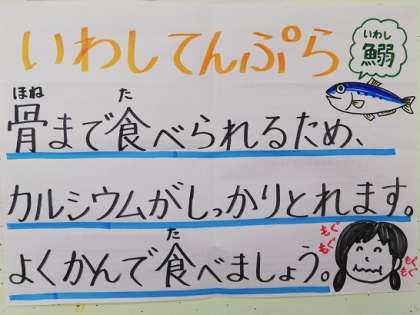 いわしてんぷら
いわし
鰯
ほね
た
骨まで食べられるため、
カルシウムがしっかりとれます。
た
よくかんで食べましょう。
もぐ
もぐ
もぐ
もぐ